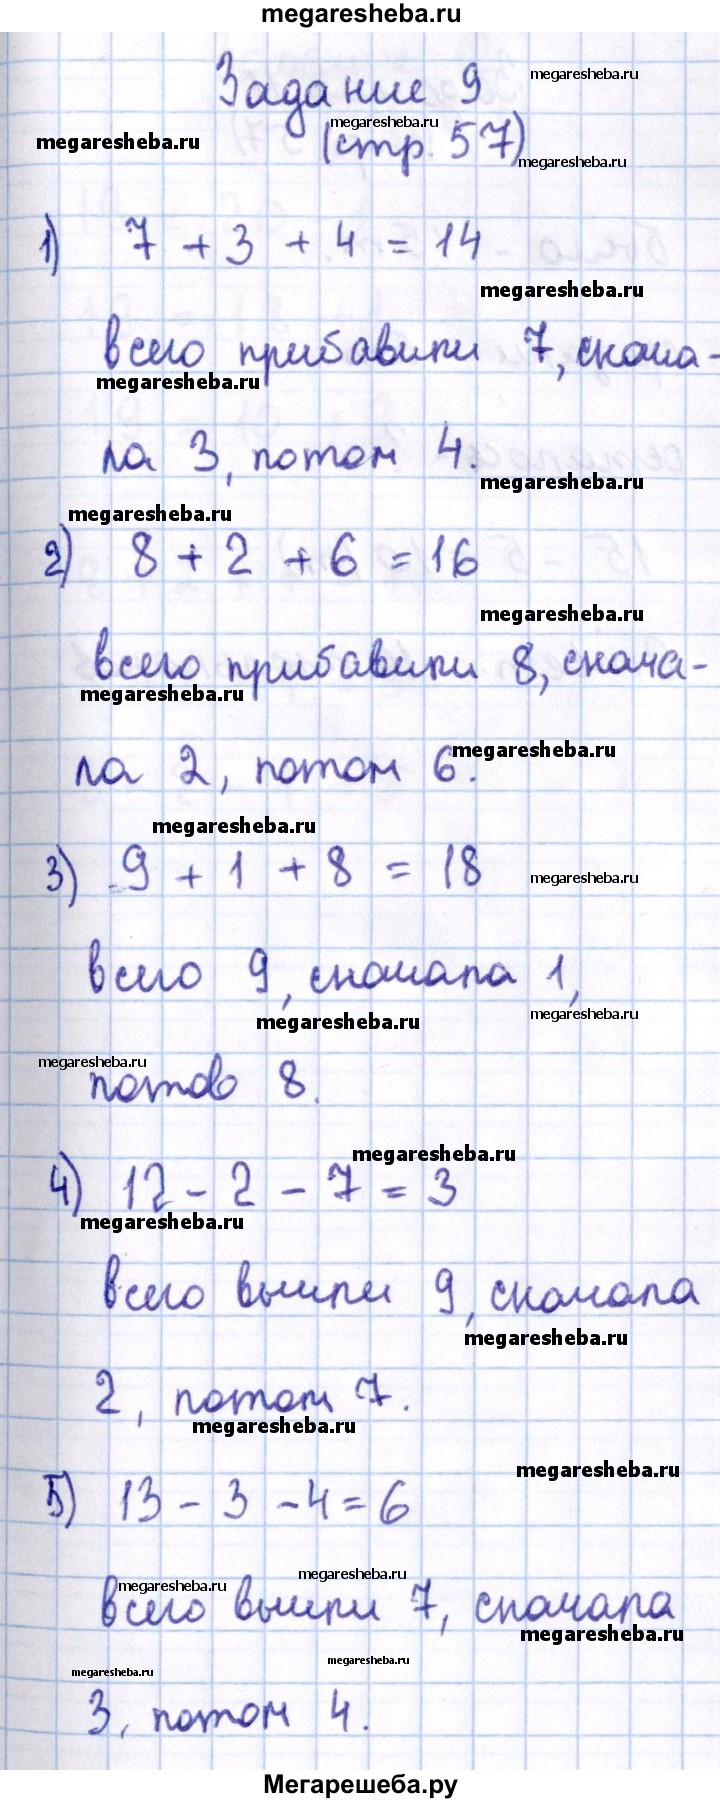 megaresheba.ru
Задание 9
megaresheba.ru
megaresheba.ru
megaresheba.ru
(стр. 57)
megaresheba.ru
1) 7 + 3 + 4 = 14
megaresheba.ru
всего прибавили 7, снача-
megaresheba.ru
ла 3, потом 4.
megaresheba.ru
megaresheba.ru
2) 8 + 2 + 6 = 16
megaresheba.ru
всего прибавили 8, снача-
megaresheba.ru
ла 2, потом 6.
megaresheba.ru
megaresheba.ru
3) 9 + 1 + 8 = 18
megaresheba.ru
всего 9, сначала 1,
megaresheba.ru
megaresheba.ru
megaresheba.ru
потов 8.
megaresheba.ru
4) 12 - 2 - 7 = 3
megaresheba.ru
всего вычли 9, сначала
megaresheba.ru
2, потом 7.
megaresheba.ru
megaresheba.ru
5) 13 - 3 - 4 = 6
megaresheba.ru
megaresheba.ru
всего вычли 7, сначала
megaresheba.ru
megaresheba.ru
megaresheba.ru
3, потом 4.
Мегарешеба.ру